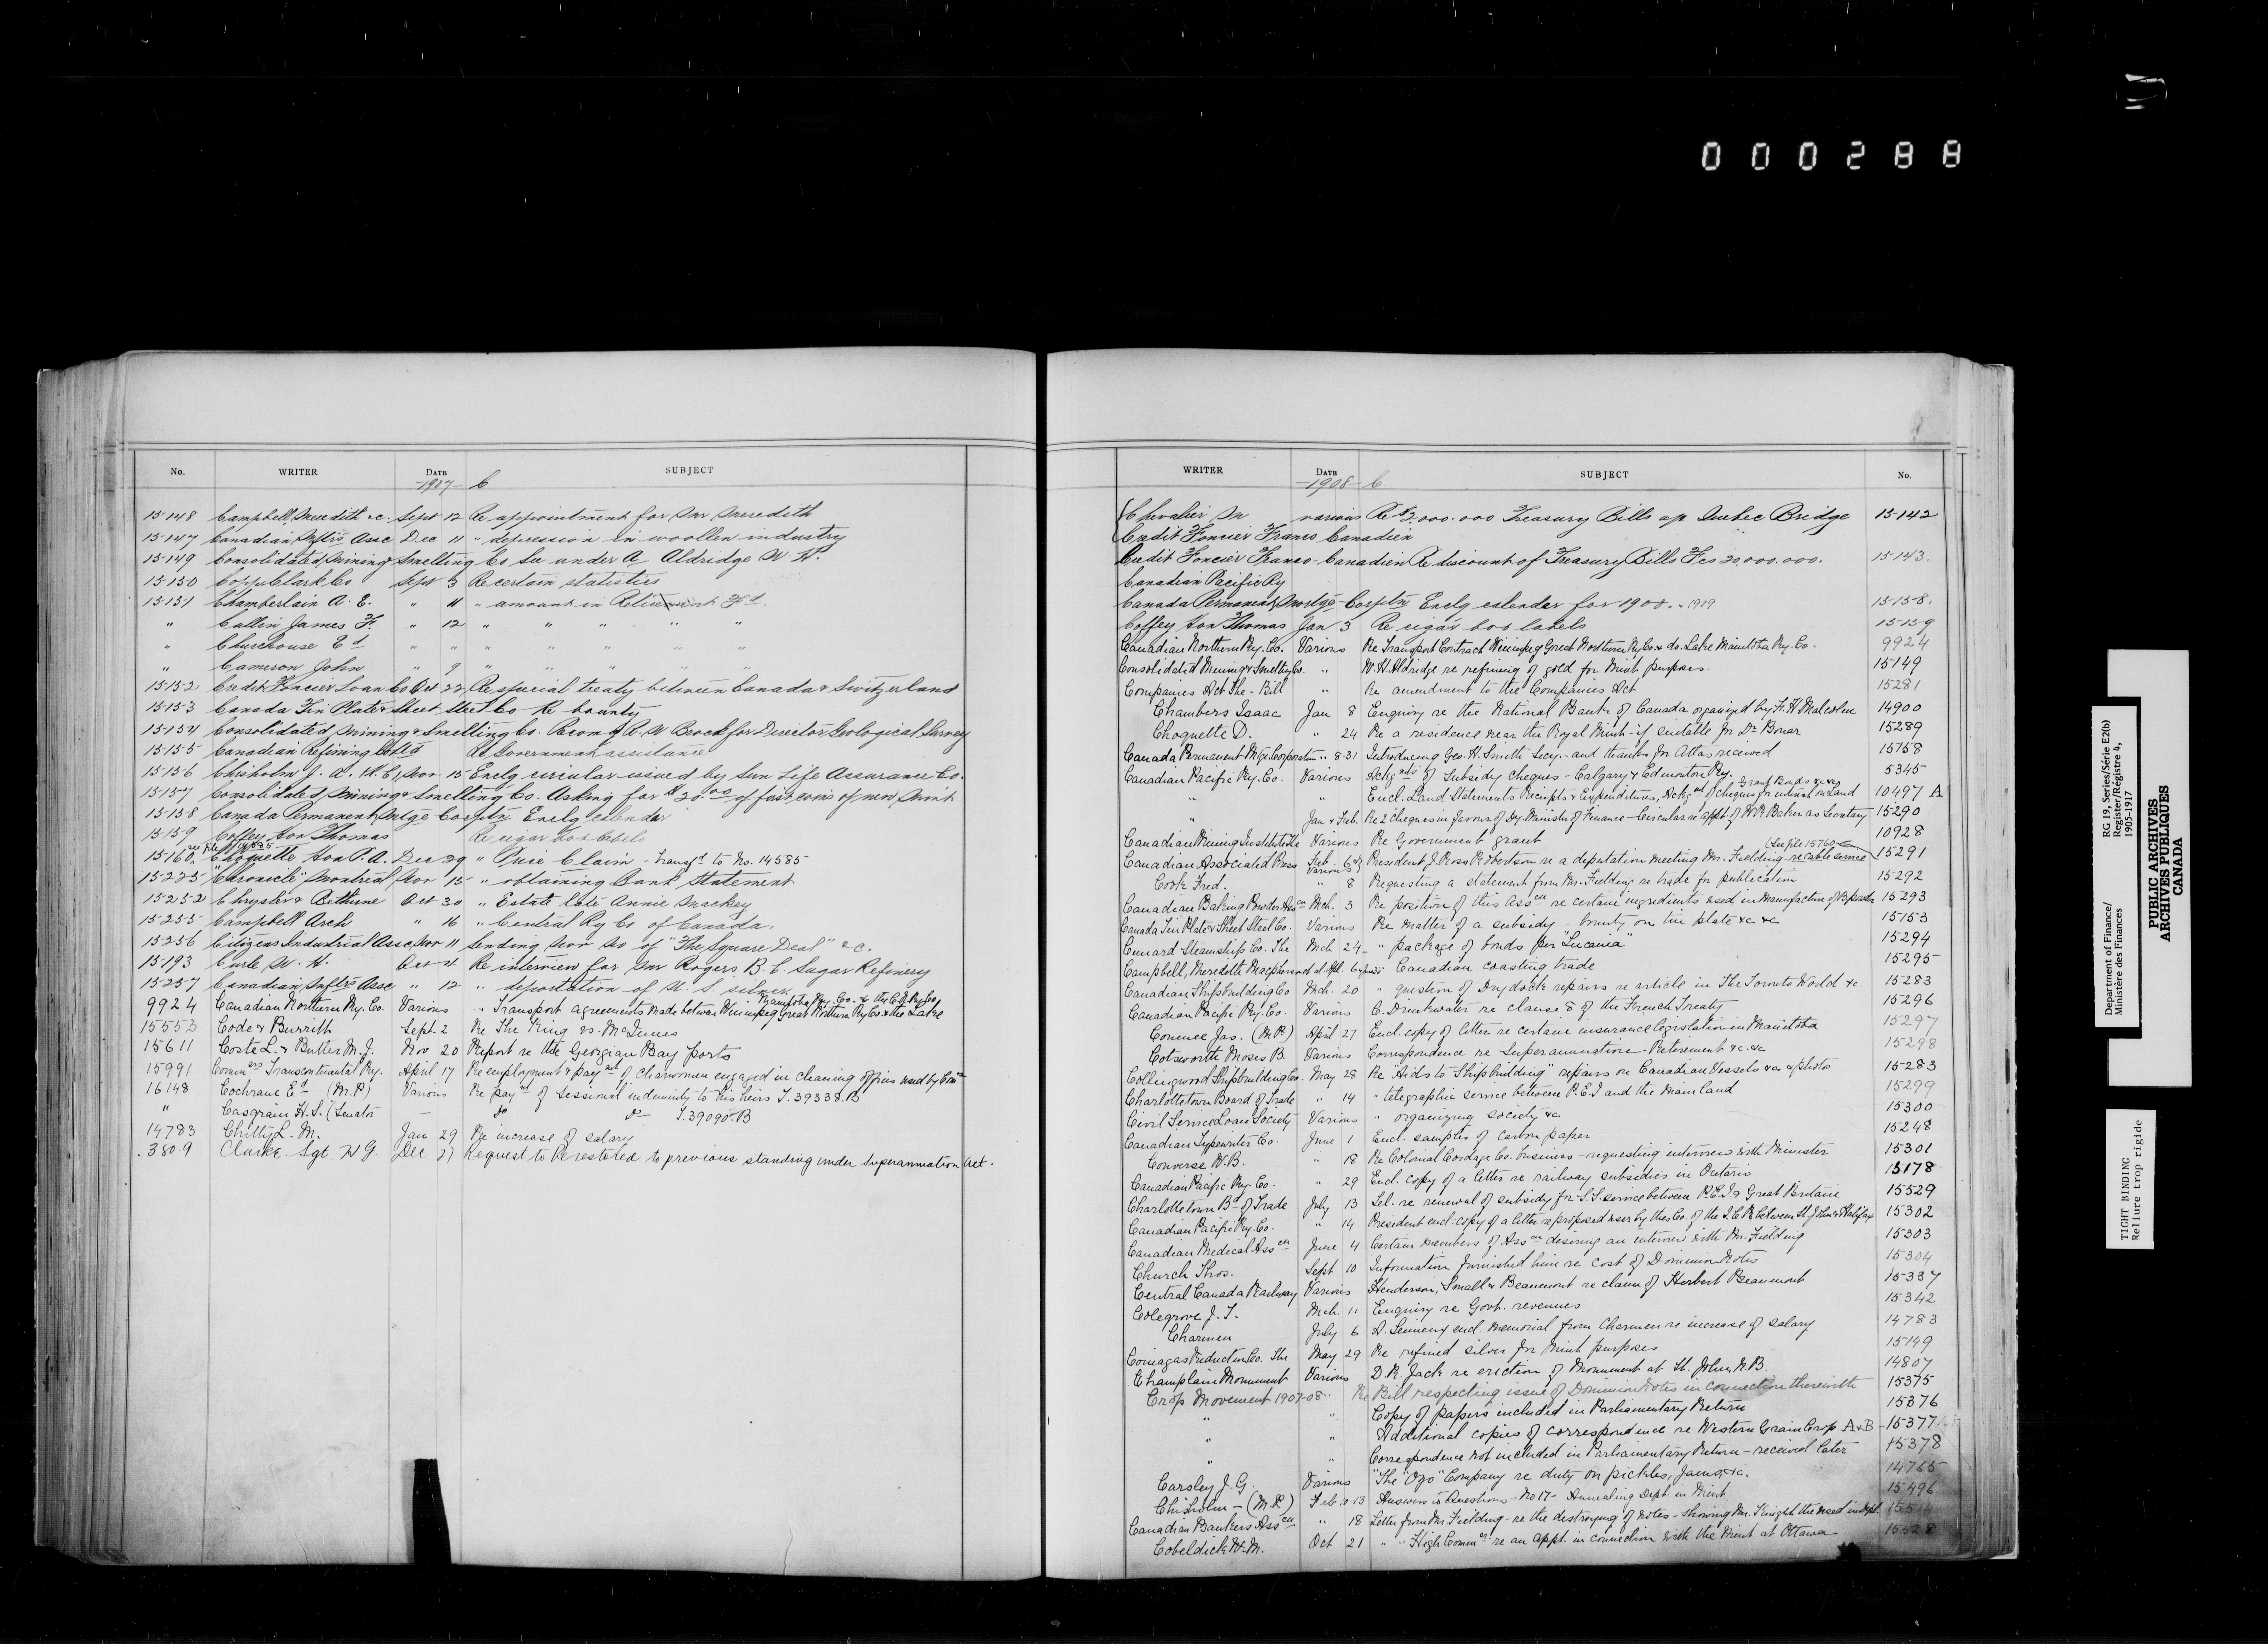 000288
No. WRITER DATE SUBJECT
-1907- C
15148 Campbell, Meredith &c. Sept 12 Re appointment for Mr Meredith
15147 Canadian Mftrs Assc Dec 11 " depression in woollen industry
15149 Consolidated Mining & Smelting Co See under A Aldridge W. H.
15150 Copp Clark Co Sept 3 Re certain statistics
15151 Chamberlain A. E. " 11 " amount in Retirement Fd.
" Callin James F. " 12 " " " " "
" Churchouse Ed " " " " " " "
" Cameron John " 9 " " " " "
15152 Credit Foncier Loan Co Oct 22 Re special treaty between Canada & Switzerland
15153 Canada Tin Plate & Sheet Steel Co Re bounty
15154 Consolidated Mining & Smelting Co. Recom of R. W Brock for Director Geological Survey
15155 Canadian Refining Co Ltd Re Government assistance
15156 Chisholm J. A. K. C. Nov. 15 Enclg circular issued by Sun Life Assurance Co.
15157 Consolidated Mining & Smelting Co. Asking for $20.00 of first coins of new Mint
15158 Canada Permanent Mtge Corpltn Enclg calendar
15159 Coffey Hon Thomas Re cigar box labels
see file 14585
15160 Choquette Hon P. A. Dec 29 " Price Claim - Transfd to No. 14585
15225 "Chronicle" Montreal Nov 15 " obtaining Bank Statement
15252 Chrysler & Bethune Oct 30 " Estate late Annie Mackey
15255 Campbell Arch " 16 " Central Ry Co of Canada.
15256 Citizens Industrial Assc Nov 11 Sending Nov No of "The Square Deal" &c.
15193 Curle W. H. Oct 4 Re interview for Mr Rogers B. C Sugar Refinery
15257 Canadian Mftrs Assc " 12 " deportation of U. S silver
Manitoba Ry. Co. & the C. N. Ry Co
9924 Canadian Northern Ry. Co. Various " Transport agreements made between Winnipeg Great Northern Ry Co & the Lake
15553 Code & Burritt Sept. 2 Re The King vs. McInnes
15611 Coste L. & Butler M. J. Nov 20 Report re the Georgian Bay ports
15991 Commrs Transcontinental Ry. April 17 Re employment & payt of charwomen engaged in cleaning offices used by Comn
16148 Cochrane Ed (M.P.) Various Re payt of sessional indemnity to his heirs T.39338.B
" Casgrain H. S. (Senator — do do T.39090.B
14783 Chitty L. M. Jan 29 Re increase of salary
3809 Clarke Sgt W G Dec 27 Request to be restored to previous standing under Superannuation Act.
WRITER DATE SUBJECT No.
-1908- C
Chevalier Mr various Re $2.000.000 Treasury Bills a/c Quebec Bridge 15142
Credit Foncier Franco Canadien
Credit Foncier Franco-Canadien Re discount of Treasury Bills Fcs 20.000.000. 15143.
Canadian Pacific Ry
Canada Permanent Mortge Corpltn Enclg calender for 1908. - 1909 15158.
Coffey Hon Thomas Jan 3 Re cigar box labels 15159
Canadian Northern Ry. Co. Various Re Transport Contract Winnipeg Great Northern Ry Co & do. Lake Manitoba Ry. Co. 9924
Consolidated Mining & Smeltg Co. " W. H. Aldridge re refining of gold for Mint purposes. 15149
Companies Act The - Bill " Re amendment to the Companies Act 15281
Chambers Isaac Jan 8 Enquiry re the National Bank of Canada organized by F. H. Malcolm 14900
Choquette D. " 24 Re a residence near the Royal Mint - if suitable for Dr Bonar 15289
Canada Permanent Mtge Corporation " 8-31 Introducing Geo. H. Smith Secy. and thanks for Atlas received 15158
Canadian Pacific Ry. Co. Various Ackgmts of Subsidy cheques - Calgary & Edmonton Ry. 5345
Grant Bonds &c &c
" " Encl. Land Statements Receipts & Expenditures, Ackgmt of cheques for interest on Land 10497 A
" Jan & Feb. Re 2 cheques in favour of Dy. Minister of Finance - Circular re appt. of W. R. Baker as Secretary 15290
Canadian Mining Institute The Various Re Government grant 10928
(See file 15760)
Canadian Associated Press Feb. 6 & Various President J. Ross Robertson re a deputation meeting Mr. Fielding - re cable service 15291
Cook Fred. " 8 Requesting a statement from Mr. Fielding re trade for publication 15292
Canadian Baking Powder Assen Mch. 3 Re position of this Assen re certain ingredients used in manufacture of B. powder 15293
Canada Tin Plate & Sheet Steel Co. Various Re matter of a subsidy - bounty on tin plate &c &c 15153
Cunard Steamship Co. The Mch 24 " package of bonds per "Lucania" 15294
Campbell, Meredith Macpherson et al Apl. 6 Canadian coasting trade 15295
Canadian Shipbuilding Co Mch. 20 " question of Drydock repairs re article in The Toronto World &c 15283
Canadian Pacific Ry. Co. Various C. Drinkwater re clause 8 of the French Treaty 15296
Conmee Jas. (M.P.) April 27 Encl. copy of letter re certain insurance legislation in Manitoba 15297
Cotsworth Moses B. Various Correspondence re Superannuation - Retirement &c. &c 15298
Collingwood Shipbuilding Co. May 28 Re "Aids to Shipbuilding" repairs on Canadian Vessels &c & photos 15283
Charlottetown Board of Trade " 14 " telegraphic service between P.E.I and the Mainland 15299
Civil Service Loan Society Various " organizing society &c 15300
Canadian Typewriter Co. June 1 Encl. samples of carbon paper 15248
Converse W. B. " 18 Re Colonial Cordage Co. business - requesting interview with Minister 15301
Canadian Pacific Ry. Co. " 29 Encl. copy of a letter re railway subsidies in Ontario 15178
Charlottetown Bd of Trade July 13 Tel. re renewal of subsidy for S.S. service between P.E.I & Great Britain 15529
Canadian Pacific Ry. Co. " 14 President encl. copy of a letter re proposed user by the Co. of the I.C.R. between St. John & Halifax 15302
Canadian Medical Assen June 4 Certain members of Assen desiring an interview with Mr. Fielding 15303
Church Thos. Sept 10 Information furnished him re cost of Dominion Notes 15304
Central Canada Railway Various Henderson, Small & Beaumont re claim of Herbert Beaumont 15337
Colegrove J. T. Mch. 11 Enquiry re Govt. revenues 15342
Charmen July 6 encl. memorial from Charmen re increase of salary 14783
Coniagas Reduction Co. The May 29 Re refined silver for Mint purposes 15149
Champlain Monument Various D. R. Jack re erection of Monument at St. John, N.B. 14807
Crop Movement 1907-08 " Re Bill respecting issue of Dominion Notes in connection therewith 15375
" " Copy of papers included in Parliamentary Return 15376
" " Additional copies of correspondence re Western Grain Crop A & B 15377
" " Correspondence not included in Parliamentary Return - received later 15378
Carsley J. G. Various "The "Ozo" Company re duty on pickles, jams, &c. 14765
Chisholm - (M.P.) Feb 10-13 Answers to Questions - No 17 - Annealing Dept. in Mint 15496
Canadian Bankers Assen " 18 Letter from Mr. Fielding - re the destroying of notes - showing Mr. Knight the method in dept. 15514
Cobeldick W. M. Oct 21 " " High Commr re an appt. in connection with the Mint at Ottawa 15528
Department of Finance/
Ministère des Finances
RG 19, Series/Série E2(b)
Register/Régistre 4,
1905-1917
PUBLIC ARCHIVES
ARCHIVES PUBLIQUES
CANADA
TIGHT BINDING
Reliure trop rigide